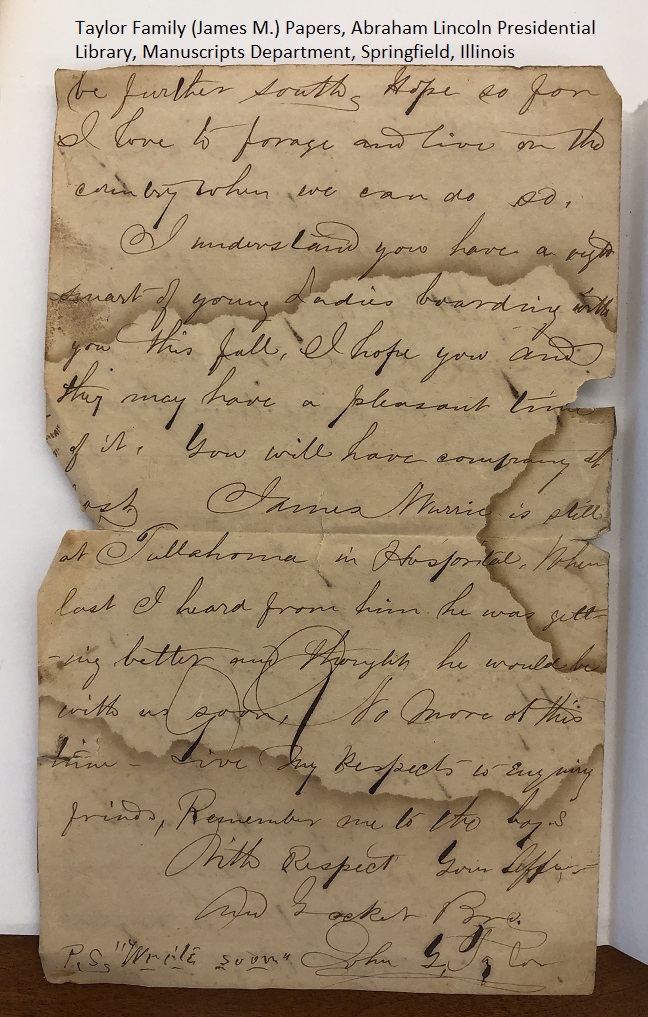 Taylor Family (James M.) Papers, Abraham Lincoln Presidential
Library, Manuscripts Department, Springfield, Illinois
be further south, Hope so for
I love to forage and live on the
country when we can do so.
I understand you have a right
smart of young Ladies boarding with
you this fall, I hope you and
they may have a pleasant time
of it. You will have company at
last, James Murrie is still
at Tullahoma in Hospital, When
last I heard from him he was gett
-ing better and thought he would be
with us soon, No More at this
time - Give My Respects to Enquiring
frinds, Remember me to the boys
With Respect Your
And Bro.
P.S, "Write soon" John